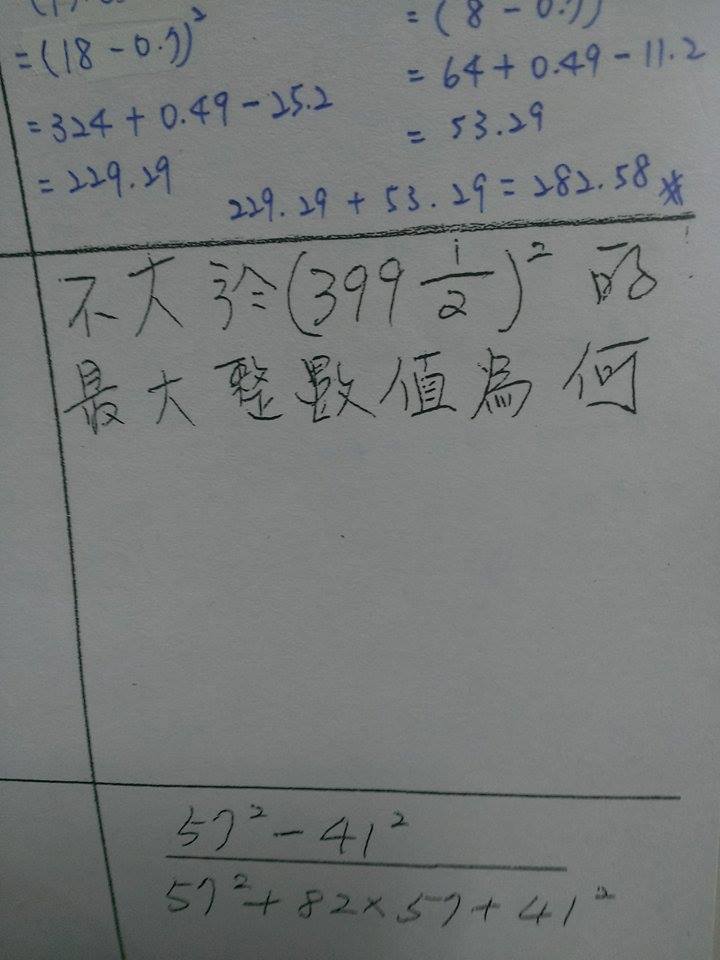 =(18-0.7)²
=324+0.49-25.2
=229.29
=(8-0.7)
=64+0.49-11.2
=53.29
229.29+53.29=282.58※
不大於(399 1/2)² 的
最大整數值為何
57²-41²
57²+82×57+41²